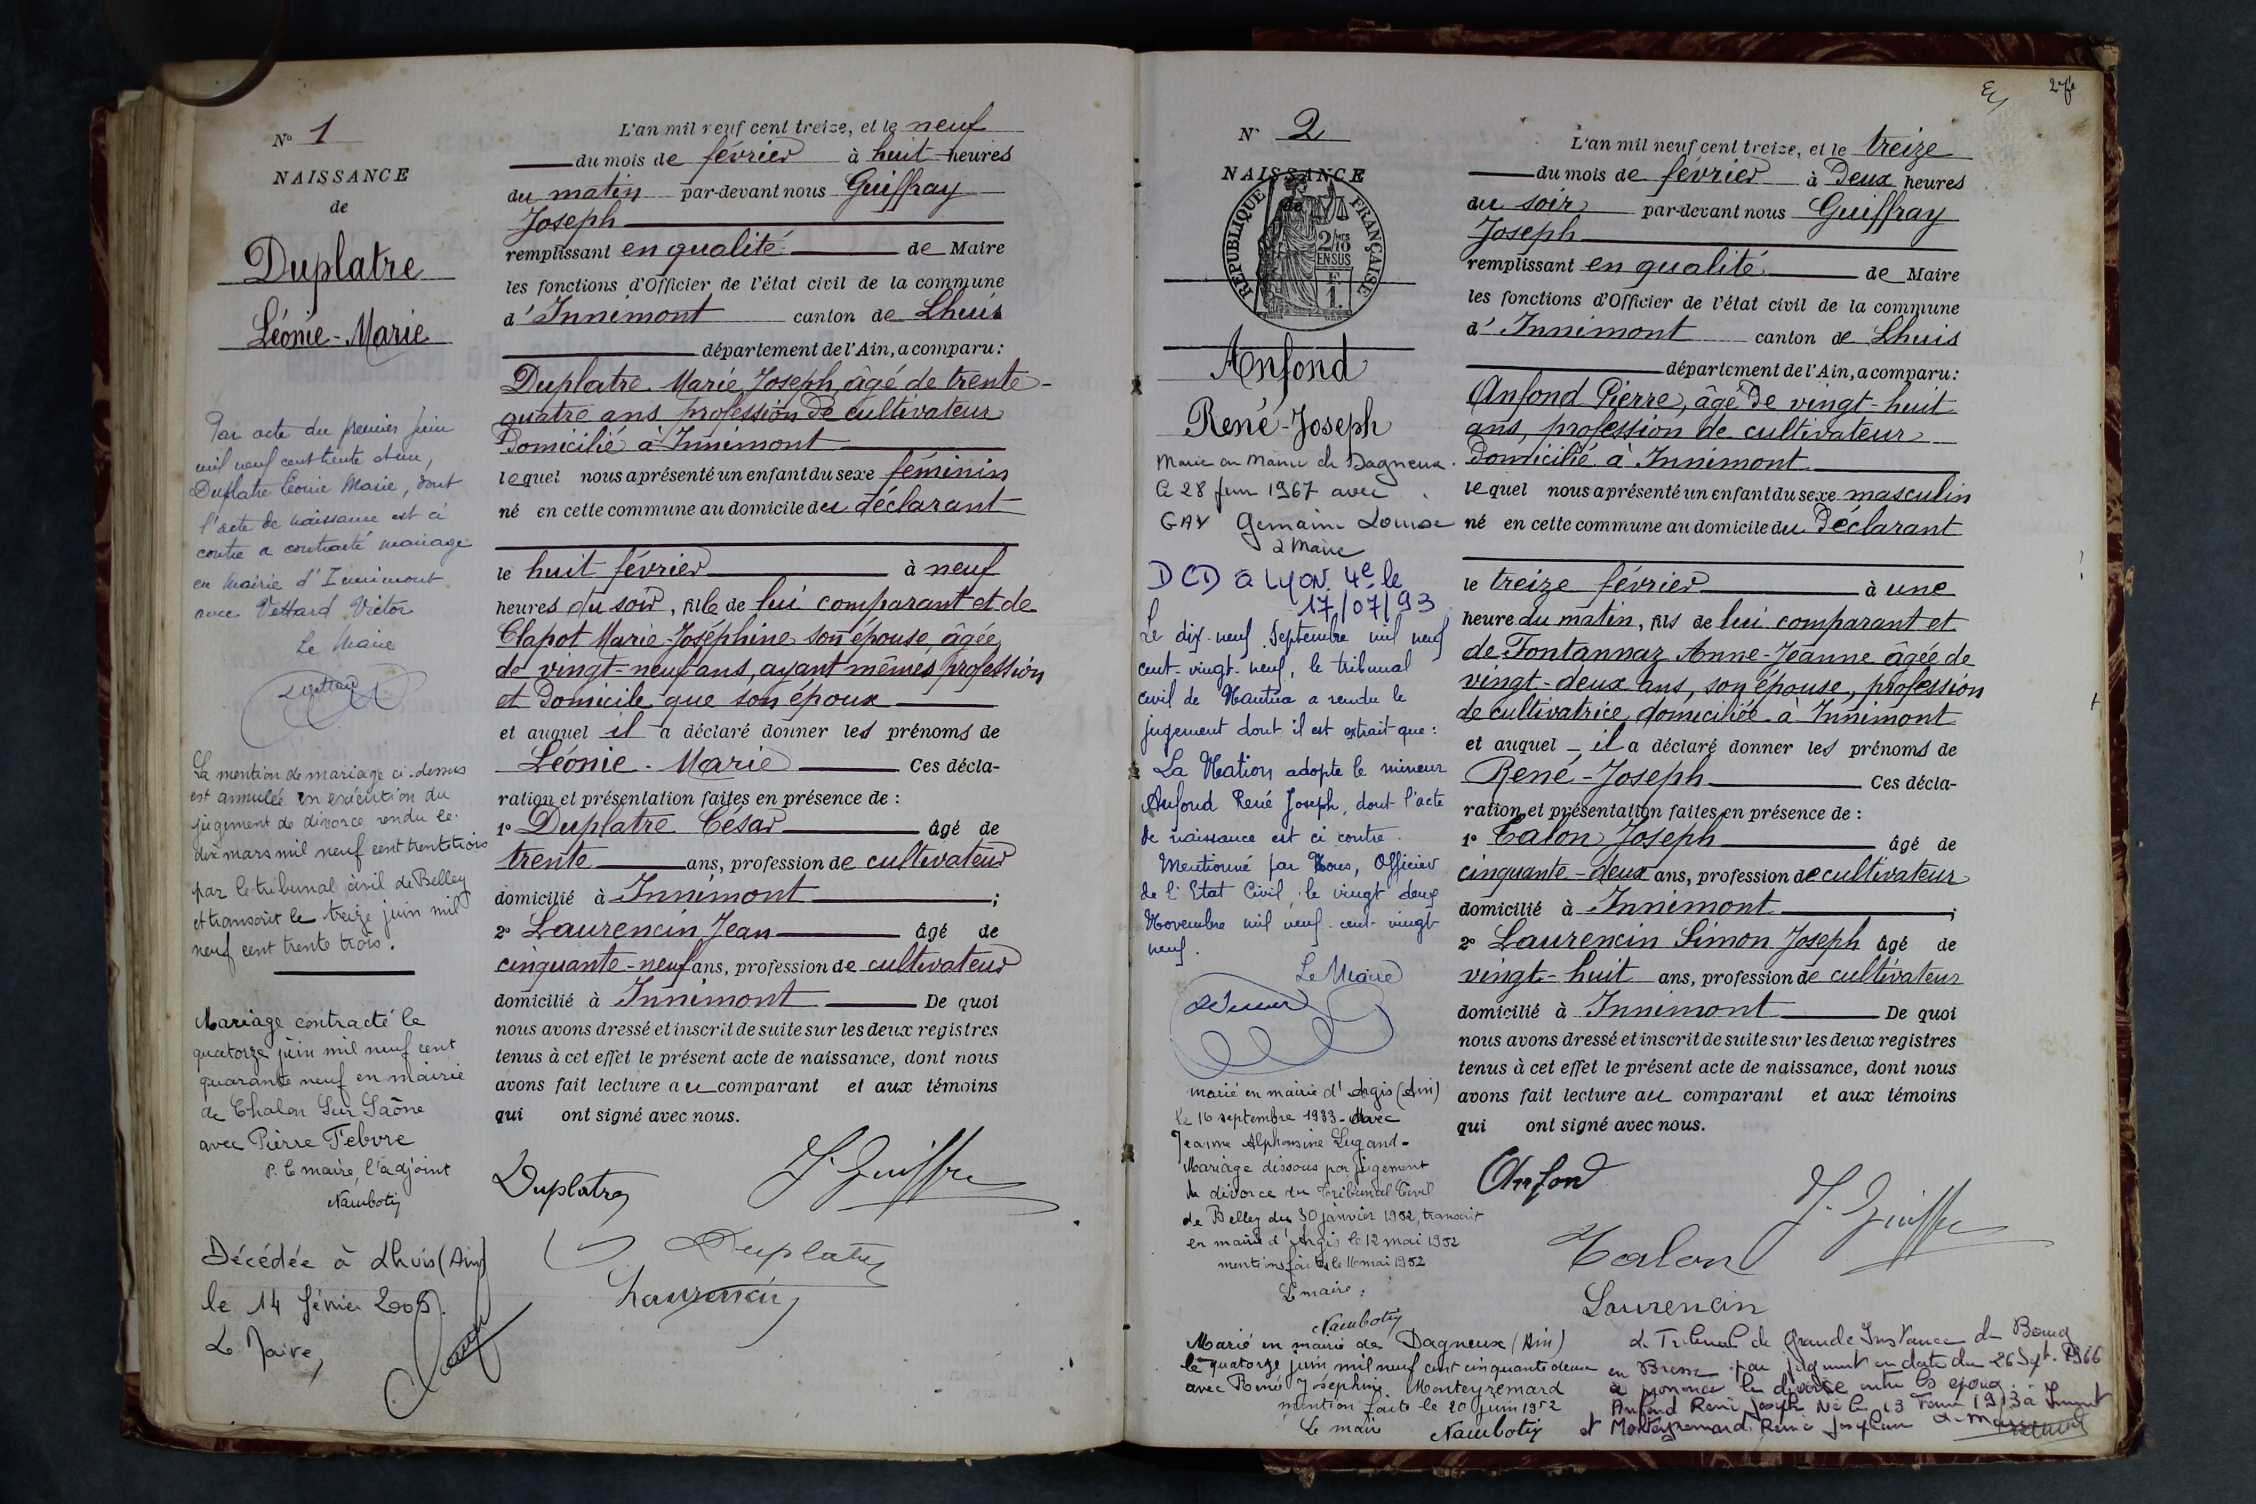 Nº 1
NAISSANCE
de
Duplatre
Léonie-Marie
Par acte du premier juin
mil neuf cent trente et un,
Duplatre Léonie Marie, dont
l'acte de naissance est ci
contre a contracté mariage
en Mairie d'Innimont
avec Vettard Victor
Le Maire
La mention de mariage ci-dessus
est annulée en exécution du
jugement de divorce rendu le
dix mars mil neuf cent trente trois
par le tribunal civil de Belley
et transcrit le treize juin mil
neuf cent trente trois.
Mariage contracté le
quatorze juin mil neuf cent
quarante neuf en mairie
de Chalon Sur Saône
avec Pierre Febvre
P. le maire, l'adjoint
Nambotin
Décédée à Lhuis (Ain)
le 14 février 2005.
Le Maire,
L'an mil neuf cent treize, et le neuf
du mois de février à huit heures
du matin par-devant nous Guiffray
Joseph
remplissant en qualité de Maire
les fonctions d'Officier de l'état civil de la commune
d'Innimont canton de Lhuis
département de l'Ain, a comparu:
Duplatre Marie Joseph, âgé de trente-
quatre ans, profession de cultivateur
domicilié à Innimont
lequel nous a présenté un enfant du sexe féminin
né en cette commune au domicile du déclarant
le huit février à neuf
heures du soir, fille de lui comparant et de
Clapot Marie-Joséphine son épouse, âgée
de vingt-neuf ans, ayant mêmes profession
et domicile que son époux
et auquel il a déclaré donner les prénoms de
Léonie-Marie Ces décla-
ration et présentation faites en présence de :
1º Duplatre César âgé de
trente ans, profession de cultivateur
domicilié à Innimont ;
2º Laurencin Jean âgé de
cinquante-neuf ans, profession de cultivateur
domicilié à Innimont De quoi
nous avons dressé et inscrit de suite sur les deux registres
tenus à cet effet le présent acte de naissance, dont nous
avons fait lecture au comparant et aux témoins
qui ont signé avec nous.
Duplatre J. Guiffray
Duplatre
Laurencin
27
Nº 2
NAISSANCE
de
RÉPUBLIQUE FRANÇAISE
2/10
EN SUS
1.
Anfond
René-Joseph
Marié en Mairie de Dagneux.
le 28 Juin 1967 avec
GAY Germaine Louise
Le Maire
DCD à Lyon 4e le
17/07/93
Le dix-neuf Septembre mil neuf
cent-vingt-neuf, le tribunal
civil de Nantua a rendu le
jugement dont il est extrait que:
La Nation adopte le mineur
Anfond René Joseph, dont l'acte
de naissance est ci contre.
Mentionné par Nous, Officier
de l'Etat Civil, le vingt deux
Novembre mil neuf-cent-vingt
neuf.
Le Maire
marié en mairie d'Argis (Ain)
le 16 septembre 1933 - avec
Jeanne Alphonsine Lugand -
Mariage dissous par jugement
de divorce du Tribunal Civil
de Belley du 30 janvier 1952, transcrit
en mairie d'Argis le 12 mai 1952
mentions faites le 16 mai 1952
Le maire,
Nambotin
Marié en mairie de Dagneux (Ain)
le quatorze juin mil neuf cent cinquante deux
avec Renée Joséphine Monteyremard
mention faite le 20 juin 1952
Le maire Nambotin
L'an mil neuf cent treize, et le treize
du mois de février à deux heures
du soir par-devant nous Guiffray
Joseph
remplissant en qualité de Maire
les fonctions d'Officier de l'état civil de la commune
d'Innimont canton de Lhuis
département de l'Ain, a comparu:
Anfond Pierre, âgé de vingt-huit
ans, profession de cultivateur
domicilié à Innimont
lequel nous a présenté un enfant du sexe masculin
né en cette commune au domicile du déclarant
le treize février à une
heure du matin, fils de lui comparant et
de Fontannaz Anne-Jeanne âgée de
vingt-deux ans, son épouse, profession
de cultivatrice, domiciliée à Innimont
et auquel il a déclaré donner les prénoms de
René-Joseph Ces décla-
ration et présentation faites en présence de :
1º Talon Joseph âgé de
cinquante-deux ans, profession de cultivateur
domicilié à Innimont ;
2º Laurencin Simon Joseph âgé de
vingt-huit ans, profession de cultivateur
domicilié à Innimont De quoi
nous avons dressé et inscrit de suite sur les deux registres
tenus à cet effet le présent acte de naissance, dont nous
avons fait lecture au comparant et aux témoins
qui ont signé avec nous.
Anfond
J. Guiffray
Talon
Laurencin
Le Tribunal de Grande Instance de Bourg
en Bresse par jugement en date du 26 Sept. 1966
a prononcé le divorce entre les époux
Anfond René Joseph Né le 13 Février 1913 à Innimont
et Monteyremard Renée Joséphine